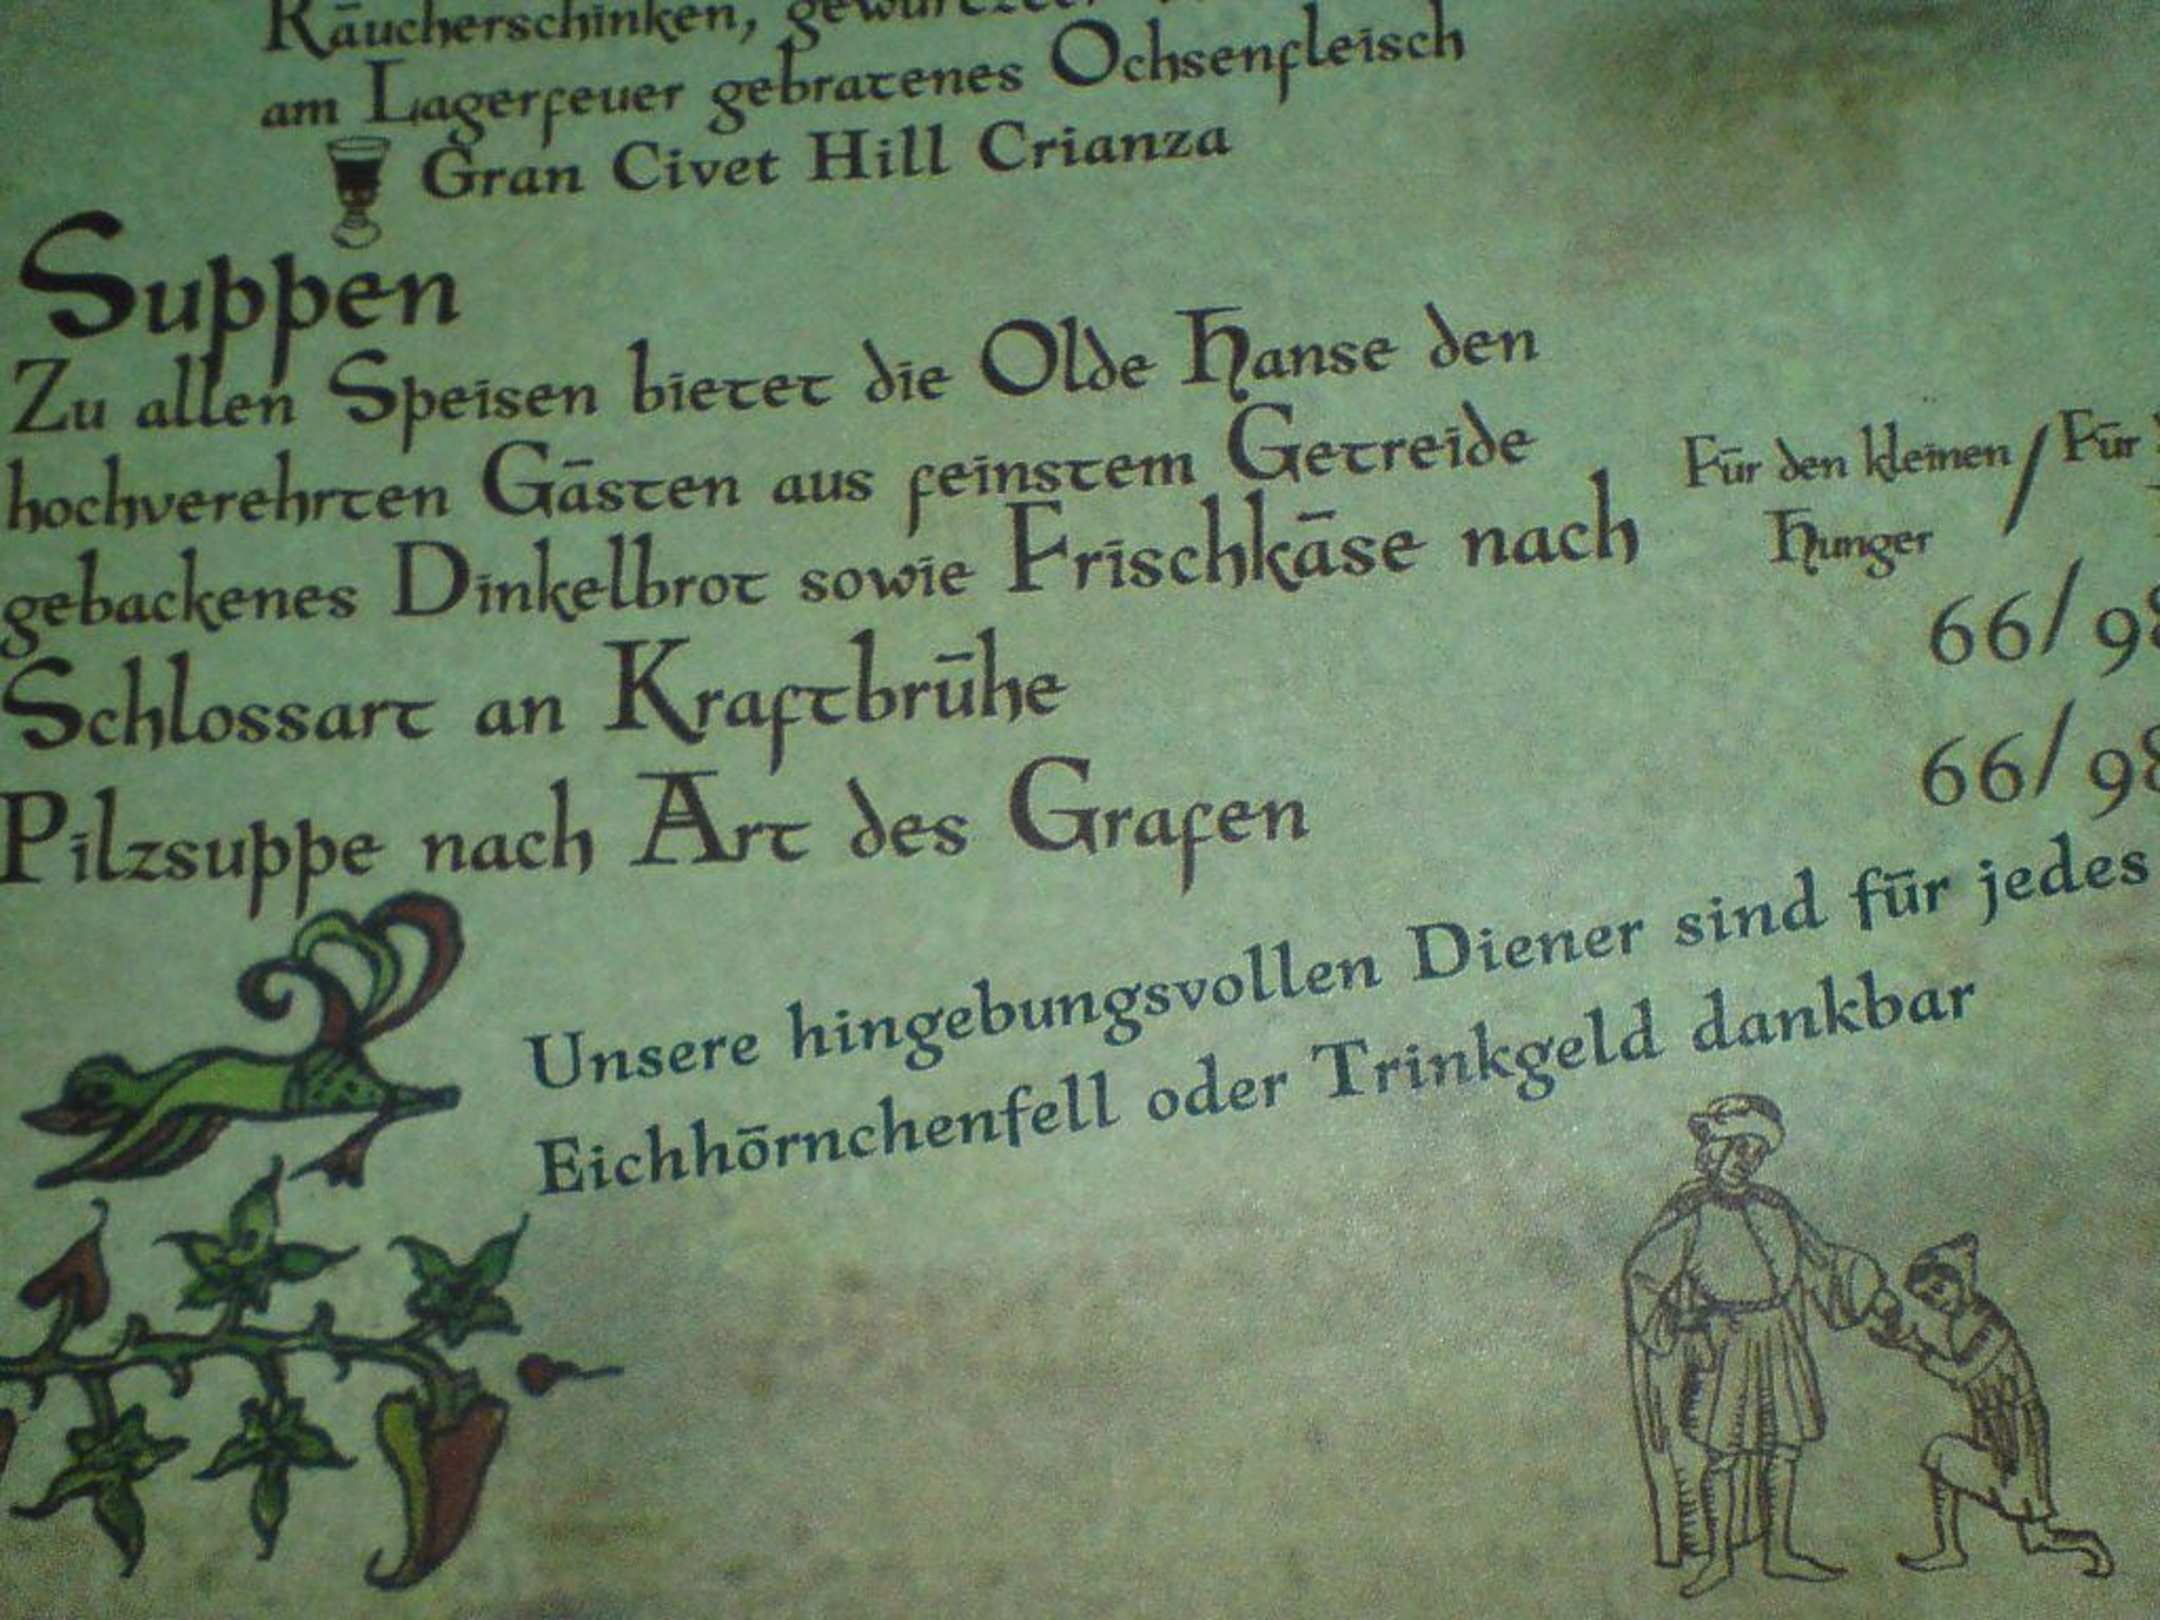 Räucherschinken,
am Lagerfeuer gebratenes Ochsenfleisch
Gran Civet Hill Crianza
Suppen
Zu allen Speisen bietet die Olde Hanse den
hochverehrten Gästen aus feinstem Getreide
gebackenes Dinkelbrot sowie Frischkäse nach
Für den kleinen / Für
Hunger
66/98
Schlossart an Kraftbrühe
66/98
Pilzsuppe nach Art des Grafen
Unsere hingebungsvollen Diener sind für jedes
Eichhörnchenfell oder Trinkgeld dankbar